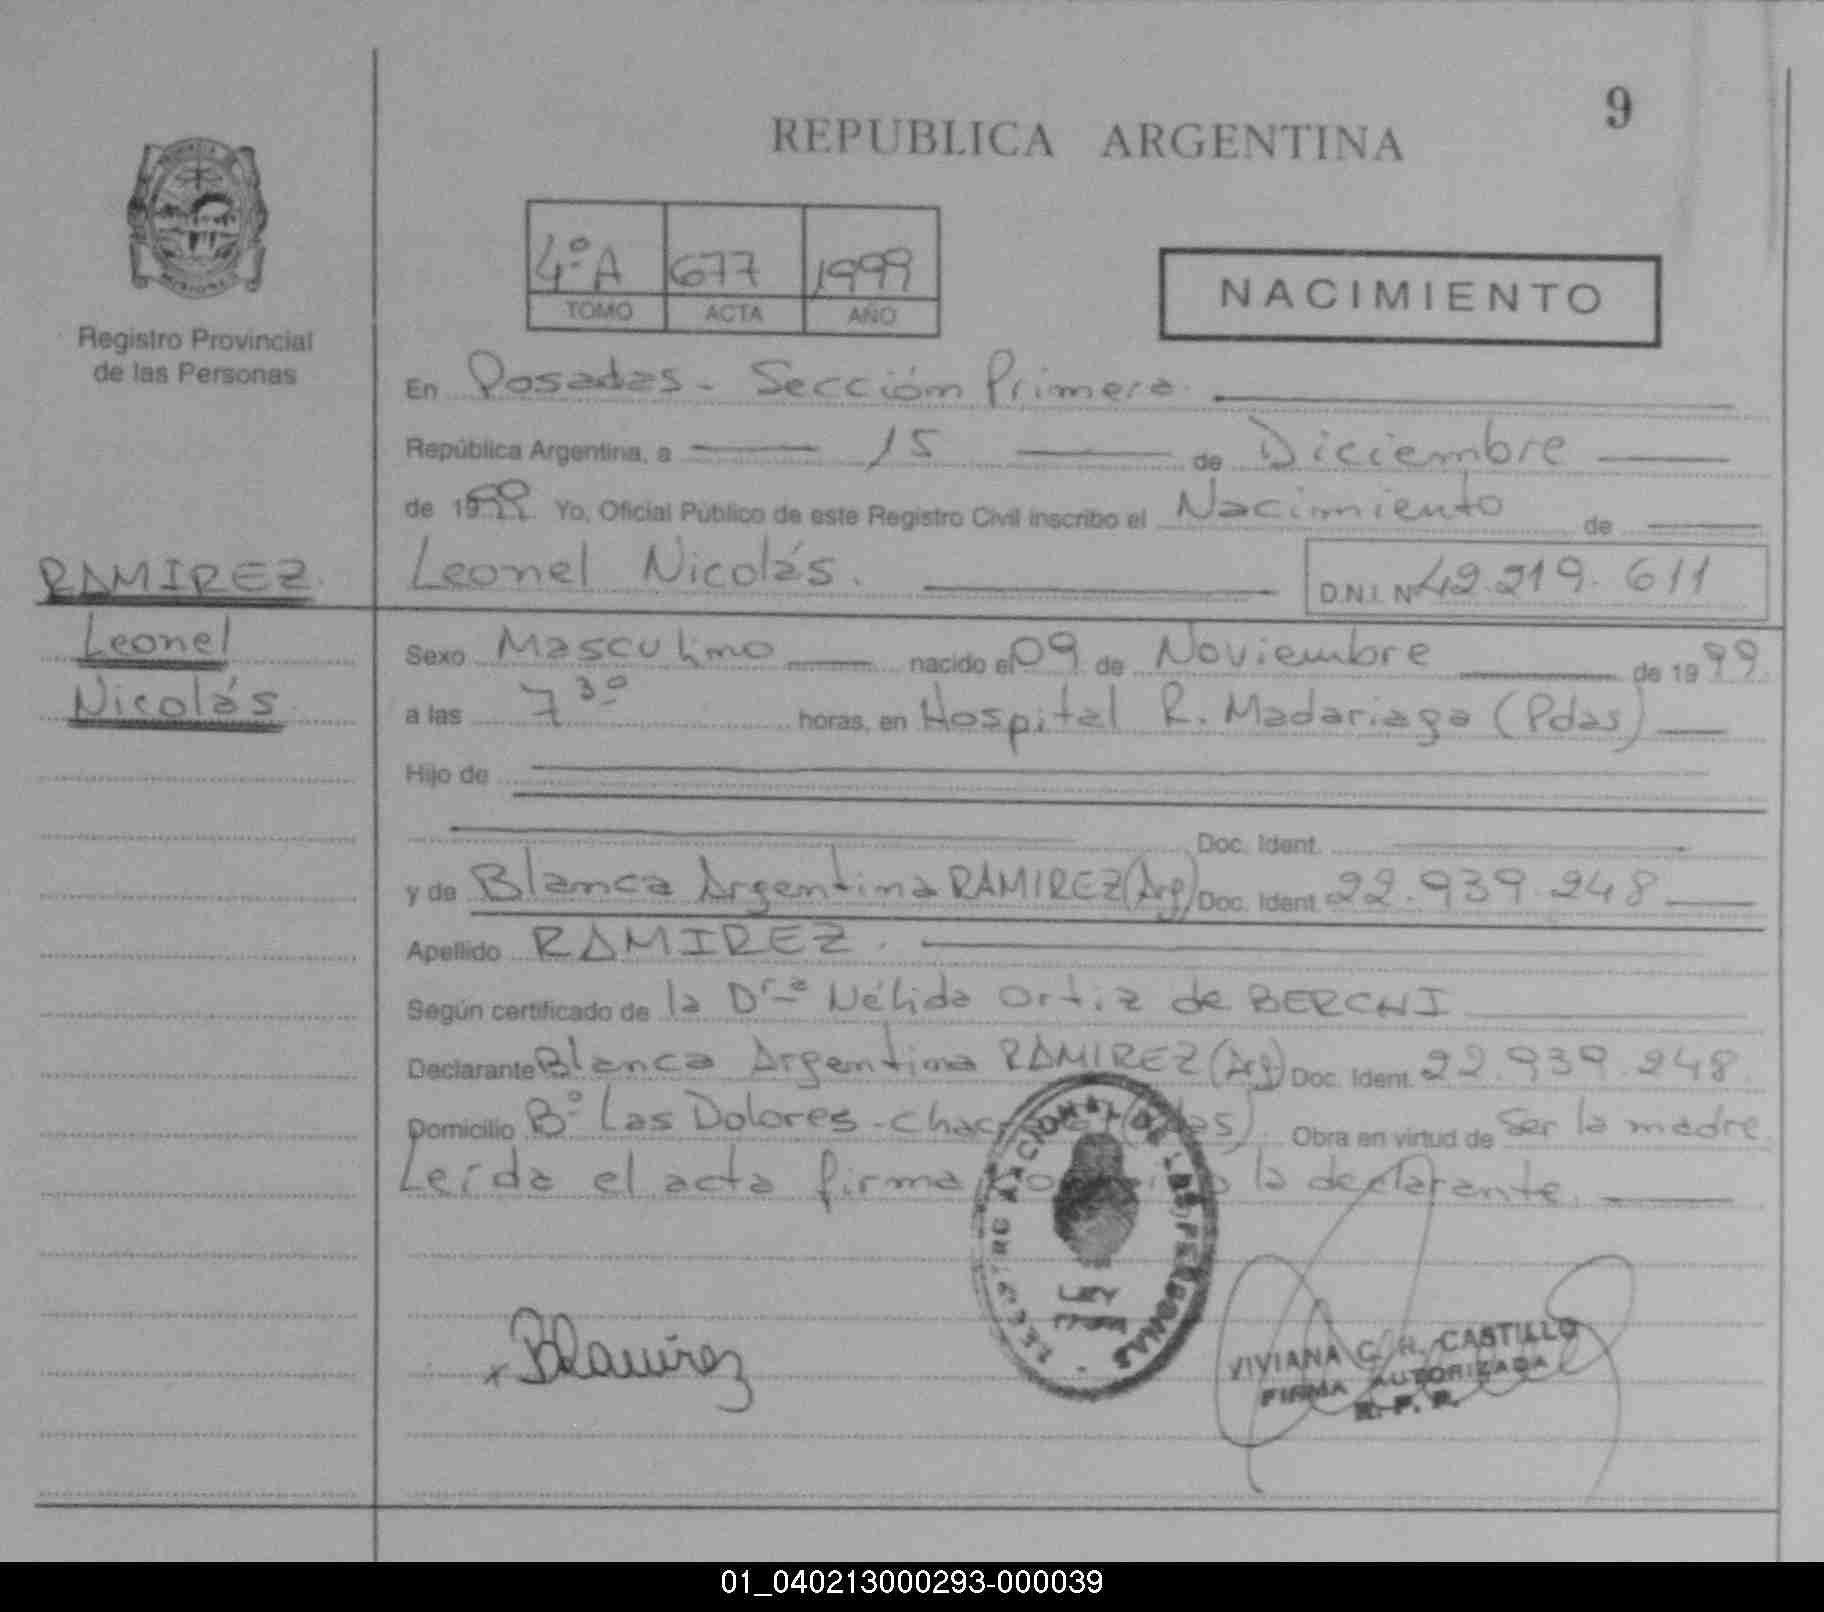 9
REPUBLICA ARGENTINA
4º A 677 1999
TOMO ACTA AÑO
NACIMIENTO
Registro Provincial
de las Personas
En Posadas - Sección Primera.
República Argentina, a 15 de Diciembre
de 1999 Yo, Oficial Público de este Registro Civil inscribo el Nacimiento de
RAMIREZ
Leonel
Nicolás
Leonel Nicolás. D.N.I. Nº 42.219.611
Sexo Masculino nacido el 09 de Noviembre de 1999.
a las 7 30 horas, en Hospital R. Madariaga (Pdas)
Hijo de
Doc. Ident.
y de Blanca Argentina RAMIREZ (Arg) Doc. Ident. 22.939.248
Apellido RAMIREZ.
Según certificado de la Dra Nélida Ortiz de BERCHI
Declarante Blanca Argentina RAMIREZ (Arg) Doc. Ident. 22.939.248.
Domicilio Bº Las Dolores - Obra en virtud de ser la madre.
Leída el acta firma la declarante.
NACIONAL DE LAS PERSONAS
LEY
BRamirez
VIVIANA G. H. CASTILLO
FIRMA AUTORIZADA
R. P. P.
01_040213000293-000039